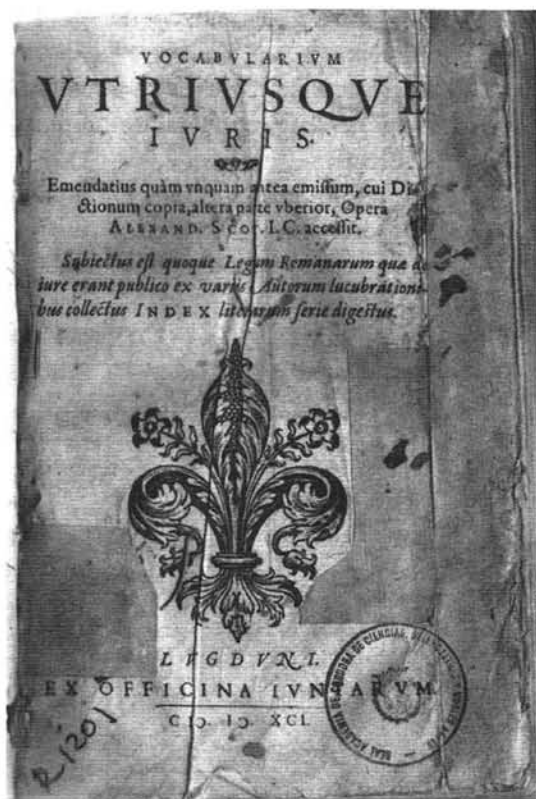 VOCABVLARIVM
VTRIVSQVE
IVRIS.
Emendatius quàm vnquam antea emissum, cui Di-
ctionum copia, altera parte vberior, Opera
ALEXAND. SCOT. I.C. accessit.
Subiectus est quoque Legum Romanarum quæ de
iure erant publico ex variis Autorum lucubrationi-
bus collectus INDEX literarum serie digestus.
LVGDVNI.
EX OFFICINA IVNTARVM
CIↃ. IↃ. XCI.
R 1201
REAL ACADEMIA DE CORDOBA DE CIENCIAS,